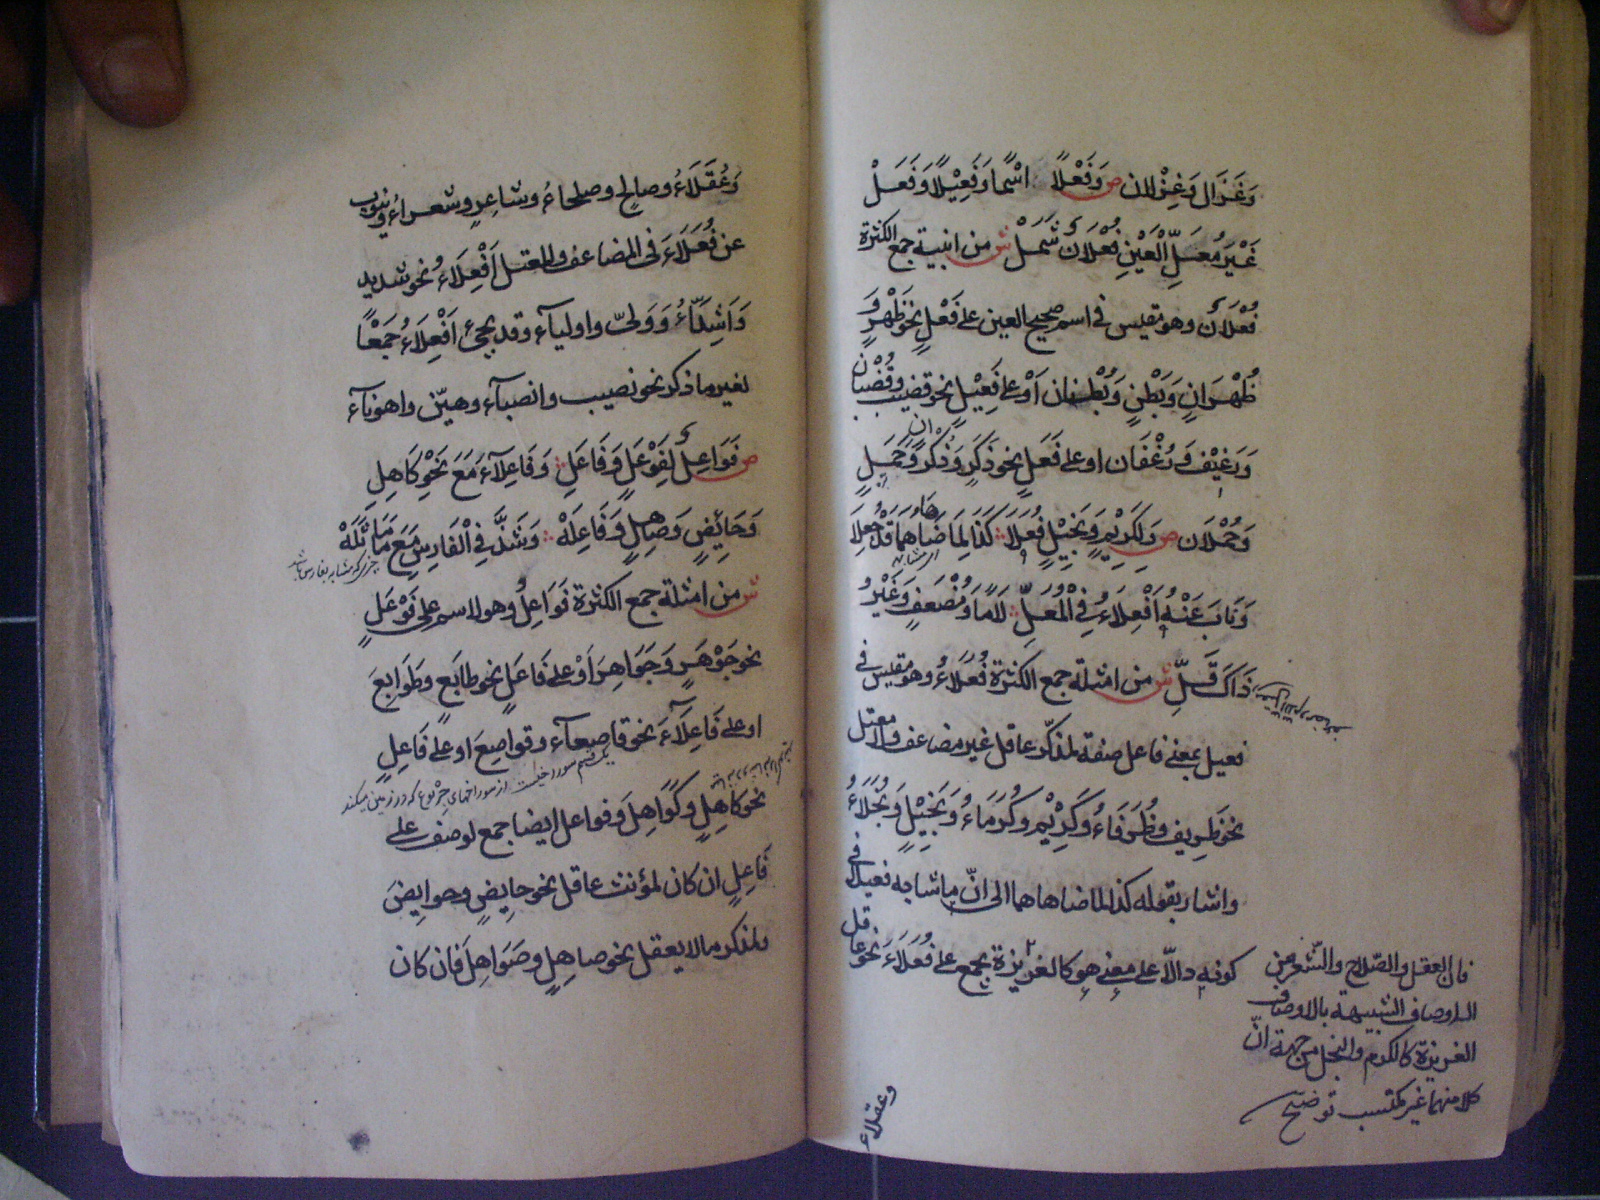 وَغَزَال وَغِزْلان ص وَفَعْلًا اسْمًا وَفَعِيْلًا وَفَعَلْ
غَيْرَ مُعَلِّ الْعَيْنِ فُعْلَانٌ شَمَلْ ش من ابنية جمع الكثرة
فُعْلَانٌ وهو مقيس فى اسم صحيح العين على فَعْلٍ نحو ظَهْرٍ وَ
ظُهْرَانٍ وَبَطْنٍ وَبُطْنان اَوْ على فَعِيْلٍ نحو قضيب وقُضْبان
وَرَغِيْف وَرُغْفَان او على فَعَلٍ نحو ذَكَرٍ وَذُكْرَان وَحَمَلٍ
وَحُمْلَان ص وَلِكَرِيْمٍ وَبَخِيْلٍ فُعَلَا كَذَا لِمَا ضَاهَاهُمَا قَدْ جُعِلَا
وَنَابَ عَنْهُ اَفْعِلَاءُ فِي الْمُعَلِّ لَامًا وَمُضْعَفٍ وَغَيْرُ
ذَاكَ قَلِّ ش من امثلة جمع الكثرة فُعَلَاءُ وهو مقيس فى
فعيل بمعنى فاعل صفة لمذكّر عاقل غير مضاعف ولا معتل
نحو ظَرِيف وظُرَفَاءُ وَكَرِيْم وكُرَمَاءُ وَبَخِيْلٍ وَبُخَلَاءُ
واشار بقوله كذا لما ضاهاهما الى انّ ما شابه فعيلا فى
كونه دالّا على معنى هو كالغريزة يجمع على فُعَلَاءَ نحو عاقل
فان العقل والصّلاح والشّعر من
الاوصاف الشبيهة بالاوصاف
الغريزة كالكرم والبخل من جهة انّ
كلا منهما غير مكتسب توضيح
وعقلاء
وَعُقَلَاءُ وصالح وصلحاءُ وشاعِرٍ وشعراءُ وينوب
عن فُعَلَاءَ فى المضاعف والمعتل اَفْعِلَاءُ نحو شديد
وَاَشِدَّاءُ وَوَلىّ واولياء وقد يجئ اَفْعِلَاءُ جَمْعًا
لغير ما ذكر نحو نصيب وانصباء وهيّن واهوناء
ص فَوَاعِلٌ لِفَوْعَلٍ وَفَاعَلِ وَفَاعِلَاءَ مَعَ نَحْوِ كَاهِلِ
وَحَائِضٍ وَصَاهِلٍ وَفَاعِلَهْ وَشَذَّ فِي الْفَارِسِ مَعَ مَا مَاثَلَهْ
ش من امثلة جمع الكثرة فَوَاعِلُ وهو لاسم على فَوْعَلٍ
نحو جَوْهَرٍ وَجَوَاهِرَ اَوْ على فَاعَلٍ نحو طابَعٍ وطَوَابِعَ
او على فَاعِلَاءَ نحو قاصعاء وقواصِعَ او على فَاعِلٍ
نحو كَاهِلٍ وكَوَاهِلَ وفواعل ايضا جمع لوصف على
فَاعِلٍ ان كان لمؤنث عاقل نحو حايِضٍ وحوايِضَ
ولمذكر ما لا يعقل نحو صاهِلٍ وصَوَاهِلَ فان كان